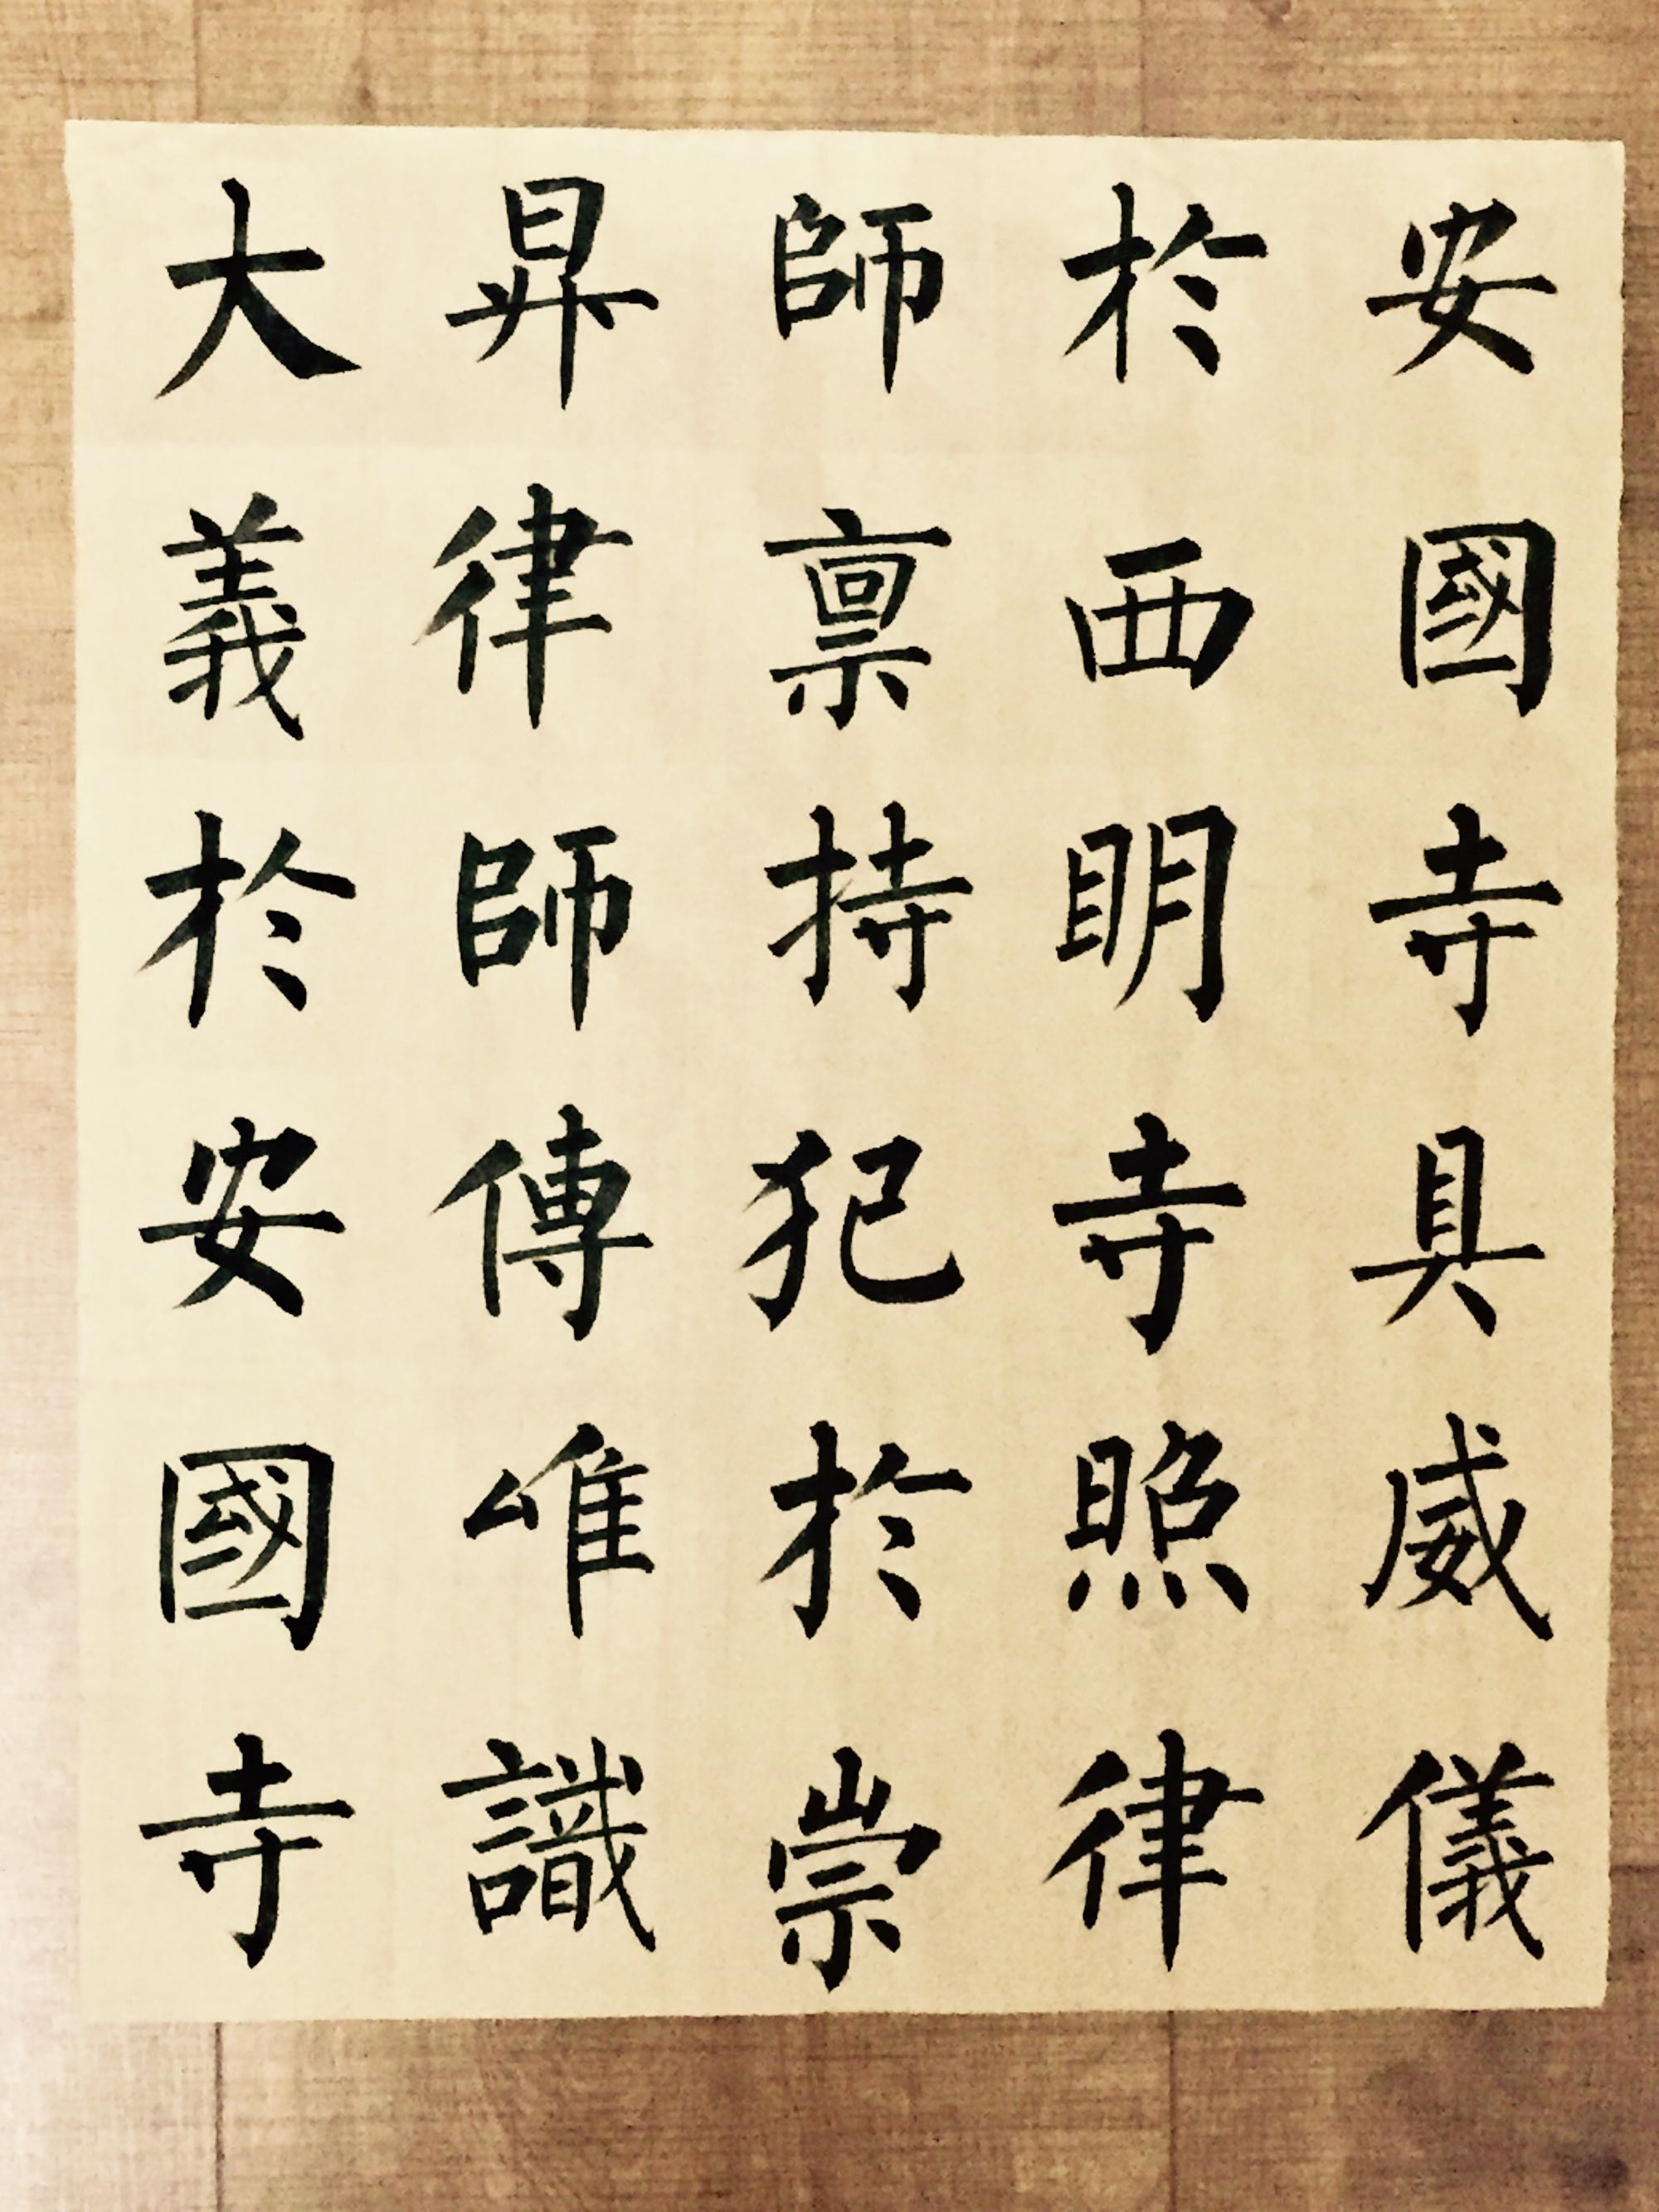 安國寺具威儀
於西明寺照律
師禀持犯於崇
昇律師傳唯識
大義於安國寺